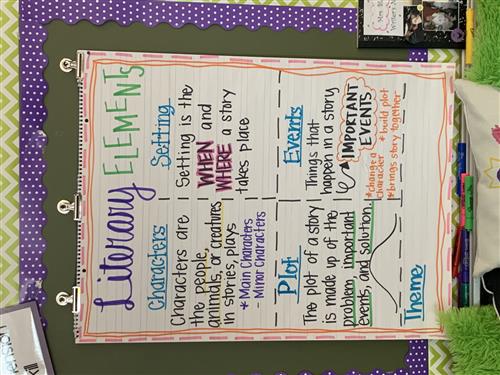 Literary ELEMENTS
Characters
Characters are
the people,
animals, or creatures
in stories, plays
* Main Characters
- Minor Characters
Setting
Setting is the
WHEN and
WHERE a story
takes place
Plot
The plot of a story
is made up of the
problem important
events, and solution
Events
Things that
happen in a story
IMPORTANT
EVENTS
* change a
character
* build plot
* brings story together
Theme